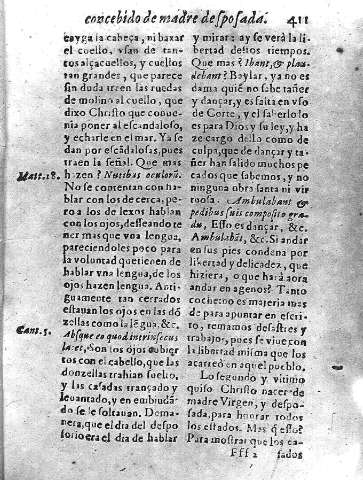 concebido de madre desposada. 411
cayga la cabeça, ni baxar
el cuello, vsan de tan-
tos alçacuellos, y cuellos
tan grandes, que parece
sin duda traen las ruedas
de molino al cuello, que
dixo Christo que conue-
nia poner al escandaloso,
y echarle en el mar. Ya se
dan por escãdalosas, pues
traen la señal. Que mas
Matt. 18.
hazen? Nutibus oculorũ.
No se contentan con ha-
blar con los de cerca, pe-
ro a los de lexos hablan
con los ojos, desseando te
ner mas que vna lengua,
pareciendoles poco para
la voluntad que tienen de
hablar vna lengua, de los
ojos hazen lengua. Anti-
guamente tan cerrados
estauan los ojos en las dõ
zellas como la lẽgua, &c.
Cant. 5.
Absque eo quod intrinsecus
latet, Son los ojos cubier
tos con el cabello, que las
donzellas trahian suelto,
y las casadas trançado y
leuantado, y en embiudã-
do se le soltauan. Dema-
nera, que el dia del despo
sorio era el dia de hablar
y mirar: ay se verà la li-
bertad destos tiempos.
Que mas? Ibant, & plau-
debant? Baylar, ya no es
dama quiẽ no sabe tañer
y dançar, y es falta en vso
de Corte, y el saberlo lo
es para Dios y su ley, y ha
ze cargo dello como de
culpa, que de dançar y ta-
ñer han salido muchos pe
cados que sabemos, y no
ninguna obra santa ni vir
tuosa. Ambulabant &
pedibus suis composito gra-
du, Esso es dançar, &c.
Ambulabãt, &c. Si andar
en sus pies condena por
libertad y delicadez, que
hiziera, o que harà aora
andar en agenos? Tanto
coche no es materia mas
de para apuntar en escri-
to, remamos desastres y
trabajos, pues se viue con
la libertad misma que los
acarreò en aquel pueblo.
Lo segundo y vltimo
quiso Christo nacer de
madre Virgen, y despo-
sada, para honrar todos
los estados. Mas q̃ esto?
Para mostrar que los ca-
Fff 2 sados